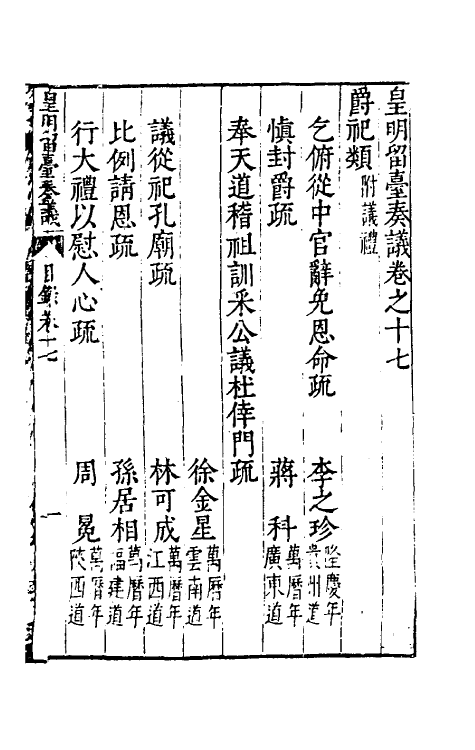 皇明留臺奏議卷之十七
爵祀類 附議禮
乞俯從中官辭免恩命疏 李之珍 隆慶年貴州道
慎封爵疏 蔣科 萬曆年廣東道
奉天道稽祖訓釆公議杜倖門疏
徐金星 萬曆年雲南道
議從祀孔廟疏 林可成 萬曆年江西道
比例請恩疏 孫居相 萬曆年福建道
行大禮以慰人心疏 周冕 萬曆年陝西道
皇明留臺奏議 目錄卷十七 一